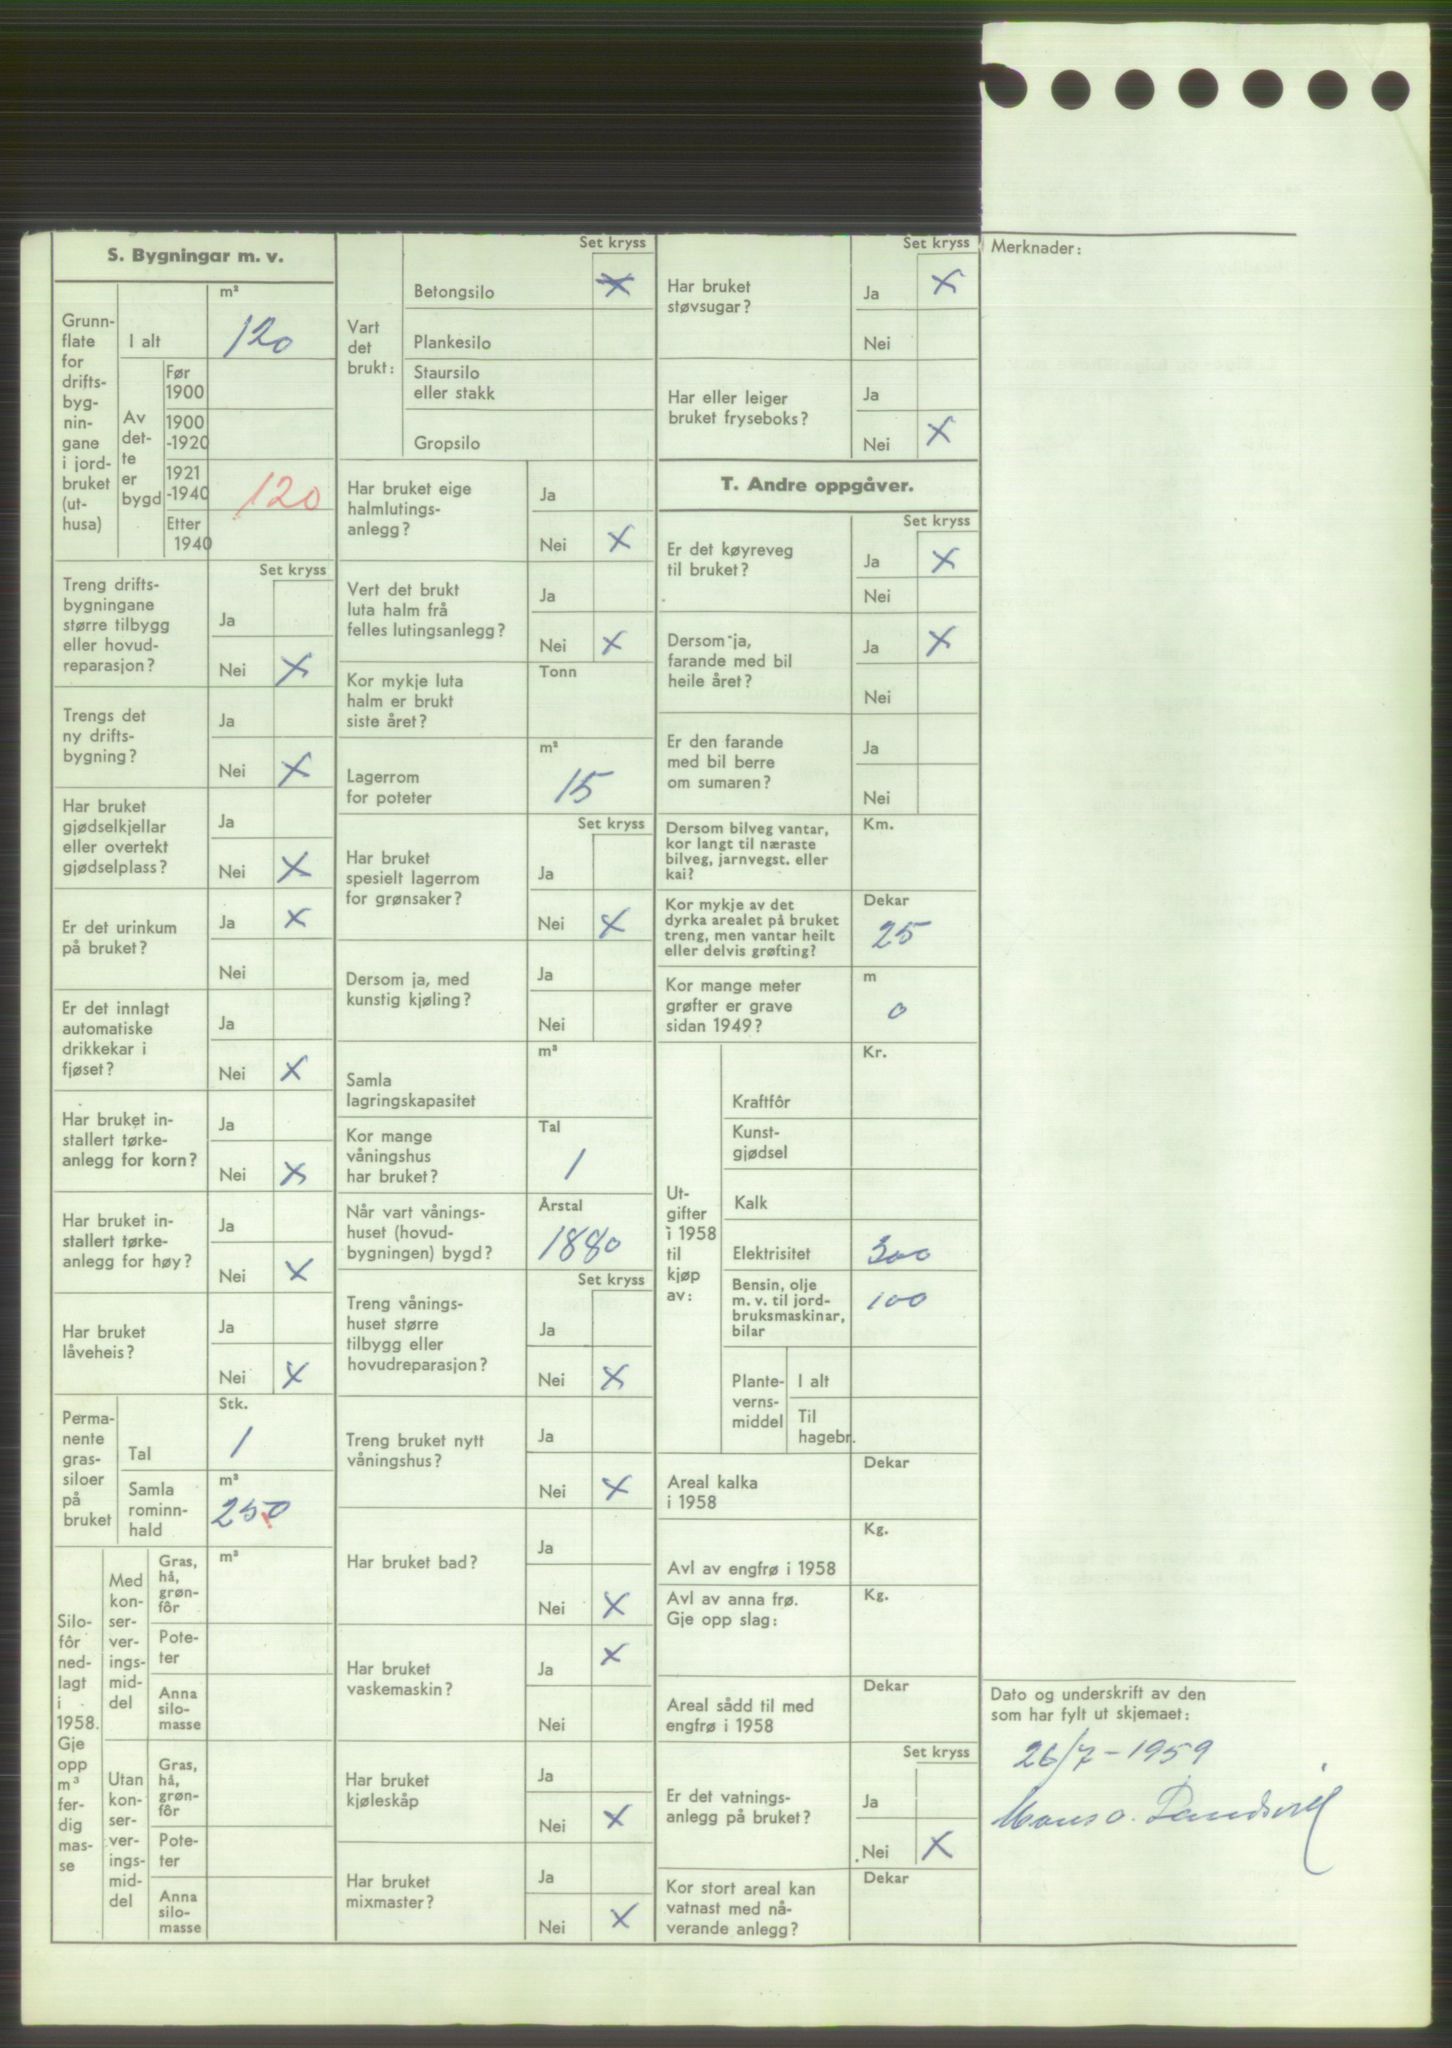 S. Bygningar m. v.
Grunn-
flate
for
drifts-
byg-
nin-
gane
i jord-
bruket
(ut-
husa)
I alt
m²
120
Av
det-
te
er
bygd
Før
1900
1900
-1920
1921
-1940
120
Etter
1940
Set kryss
Treng drifts-
bygningane
større tilbygg
eller hovud-
reparasjon?
Ja
Nei X
Trengs det
ny drifts-
bygning?
Ja
Nei X
Har bruket
gjødselkjellar
eller overtekt
gjødselplass?
Ja
Nei X
Er det urinkum
på bruket?
Ja X
Nei
Er det innlagt
automatiske
drikkekar i
fjøset?
Ja
Nei X
Har bruket in-
stallert tørke-
anlegg for korn?
Ja
Nei X
Har bruket in-
stallert tørke-
anlegg for høy?
Ja
Nei X
Har bruket
låveheis?
Ja
Nei X
Perma-
nente
gras-
siloer
på
bruket
Stk.
Tal 1
Samla
rominn-
hald
m³
250
Silo-
fôr
ned-
lagt
i
1958.
Gje
opp
m³
fer-
dig
mas-
se
Med
kon-
ser-
ver-
ings-
mid-
del
Gras,
hå,
grøn-
fôr
m³
Pote-
ter
Anna
silo-
masse
Utan
kon-
ser-
ver-
ings-
mid-
del
Gras,
hå,
grøn-
fôr
Pote-
ter
Anna
silo-
masse
Vart
det
brukt:
Set kryss
Betongsilo X
Plankesilo
Staursilo
eller stakk
Gropsilo
Har bruket eige
halmlutings-
anlegg?
Ja
Nei X
Vert det brukt
luta halm frå
felles lutingsanlegg?
Ja
Nei X
Kor mykje luta
halm er brukt
siste året?
Tonn
Lagerrom
for poteter
m²
15
Set kryss
Har bruket
spesielt lagerrom
for grønsaker?
Ja
Nei X
Dersom ja, med
kunstig kjøling?
Ja
Nei
Samla
lagringskapasitet
m³
Kor mange
våningshus
har bruket?
Tal
1
Når vart vånings-
huset (hovud-
bygningen) bygd?
Årstal
1880
Set kryss
Treng vånings-
huset større
tilbygg eller
hovudreparasjon?
Ja
Nei X
Treng bruket nytt
våningshus?
Ja
Nei X
Har bruket bad?
Ja
Nei X
Har bruket
vaskemaskin?
Ja X
Nei
Har bruket
kjøleskåp
Ja
Nei X
Har bruket
mixmaster?
Ja
Nei X
Set kryss
Har bruket
støvsugar?
Ja X
Nei
Har eller leiger
bruket fryseboks?
Ja
Nei X
T. Andre oppgåver.
Set kryss
Er det køyreveg
til bruket?
Ja X
Nei
Dersom ja,
farande med bil
heile året?
Ja X
Nei
Er den farande
med bil berre
om sumaren?
Ja
Nei
Dersom bilveg vantar,
kor langt til næraste
bilveg, jarnvegst. eller
kai?
Km.
Kor mykje av det
dyrka arealet på bruket
treng, men vantar heilt
eller delvis grøfting?
Dekar
25
Kor mange meter
grøfter er grave
sidan 1949?
m
0
Ut-
gifter
i 1958
til
kjøp
av:
Kr.
Kraftfôr
Kunst-
gjødsel
Kalk
Elektrisitet 300
Bensin, olje
m. v. til jord-
bruksmaskinar,
bilar
100
Plante-
verns-
middel
I alt
Til
hagebr.
Areal kalka
i 1958
Dekar
Avl av engfrø i 1958
Kg.
Avl av anna frø.
Gje opp slag:
Kg.
Areal sådd til med
engfrø i 1958
Dekar
Set kryss
Er det vatnings-
anlegg på bruket?
Ja
Nei X
Kor stort areal kan
vatnast med nå-
verande anlegg?
Dekar
Merknader:
Dato og underskrift av den
som har fylt ut skjemaet:
26/7-1959
Hans O.